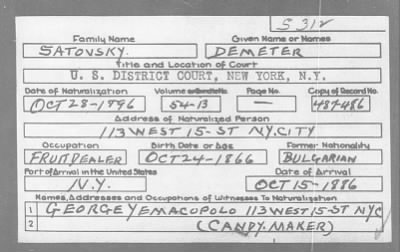 S 312
Family Name Given Name or Names
SATOVSKY. DEMETER
Title and Location of Court
U. S. DISTRICT COURT, NEW YORK, N.Y.
Date of Naturalization Volume or Bundle No. Page No. Copy of Record No.
OCT 28-1896 54-13 — 487-486
Address of Naturalized Person
113 WEST 15-ST N.Y. CITY
Occupation Birth Date or Age Former Nationality
FRUIT DEALER OCT 24-1866 BULGARIAN
Port of Arrival in the United States Date of Arrival
N.Y. OCT 15-1886
Names, Addresses and Occupations of Witnesses To Naturalization
1 GEORGE YEMACOPOLO 113 WEST 15-ST NYC
2 (CANDY-MAKER)